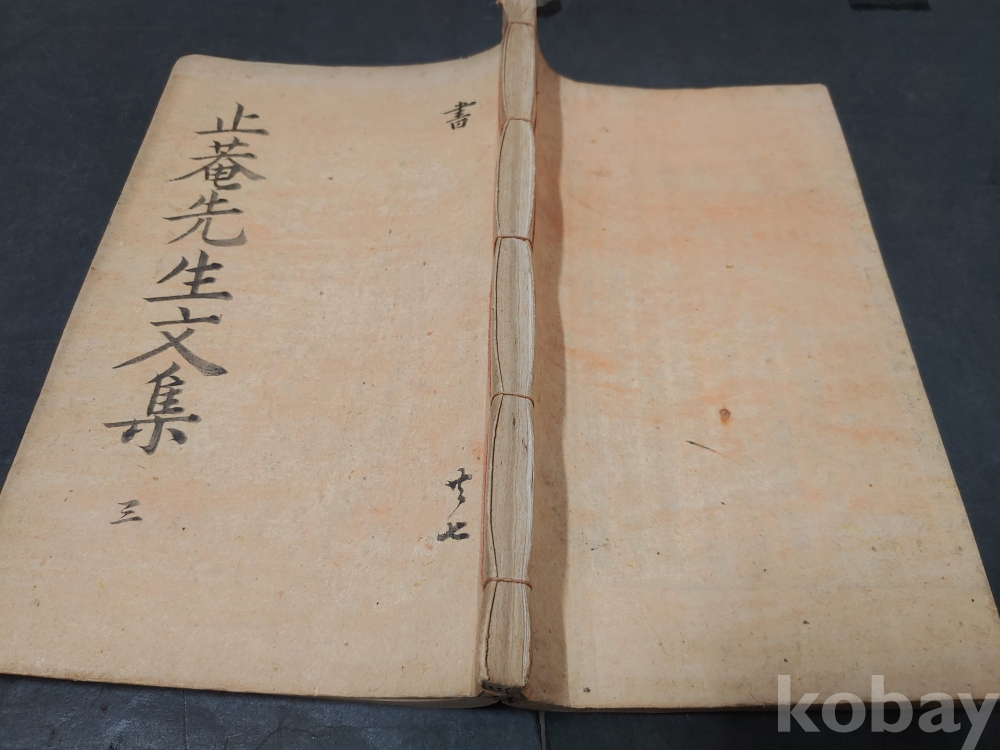 止菴先生文集
三
書
共七
kobay